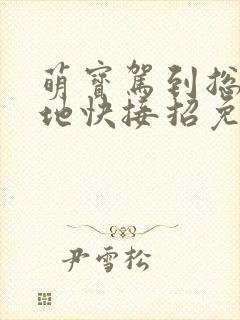 萌寶駕到總
地快接招免
尹雪松